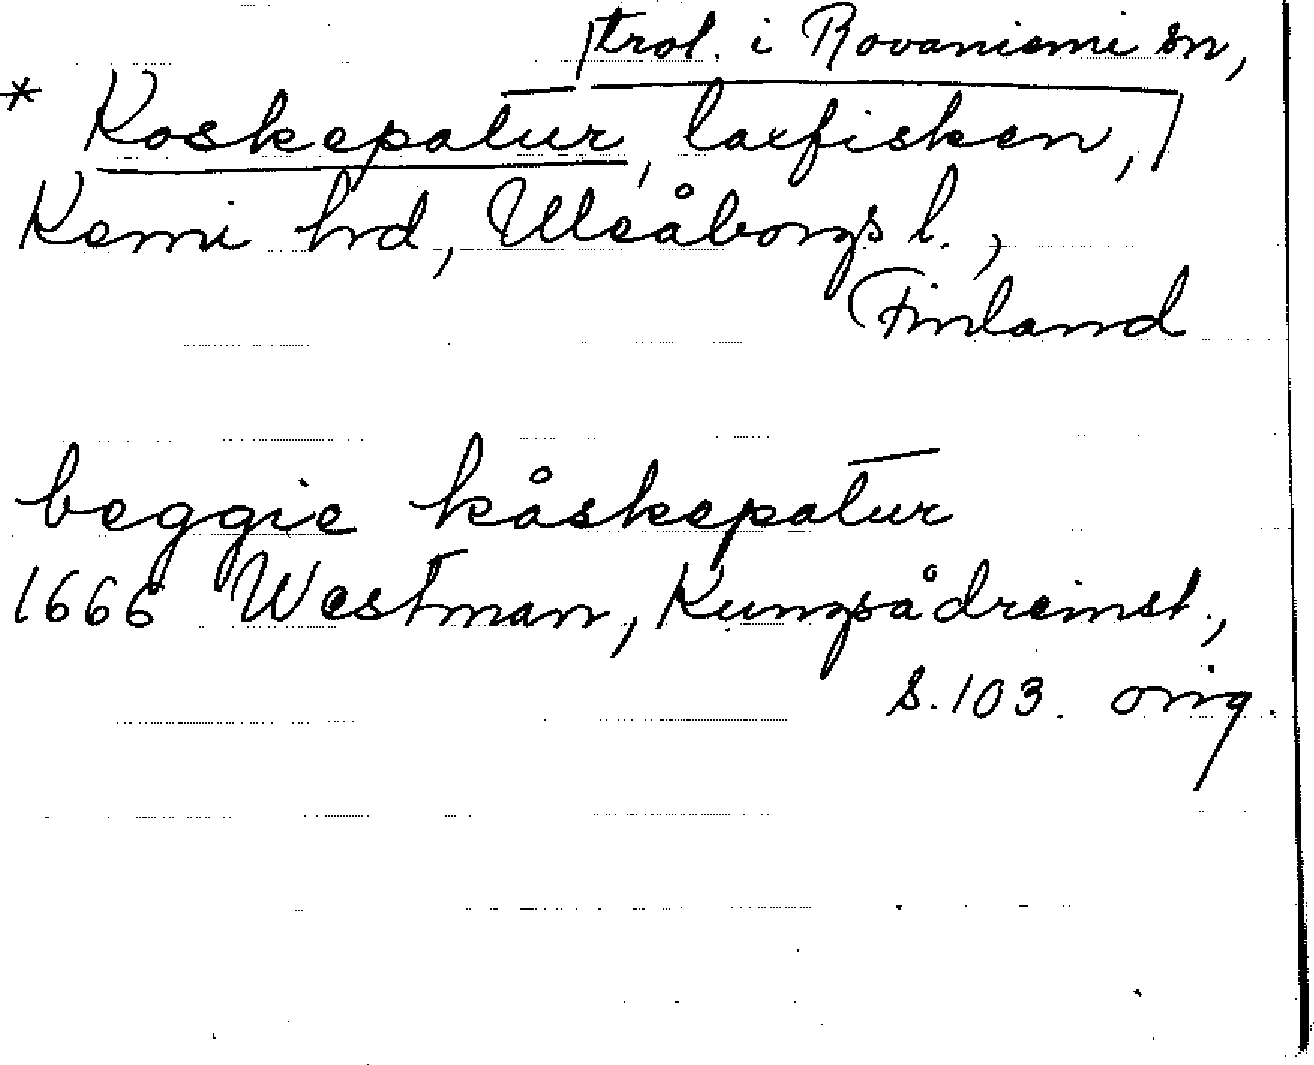 trol. i Rovaniemi sn,
* Koskepatur, laxfisken,
Kemi hrd, Uleåborgs l.,
Finland
beggie kåskepatur
1666 Westman, Kungsådreinst.,
s. 103. orig.